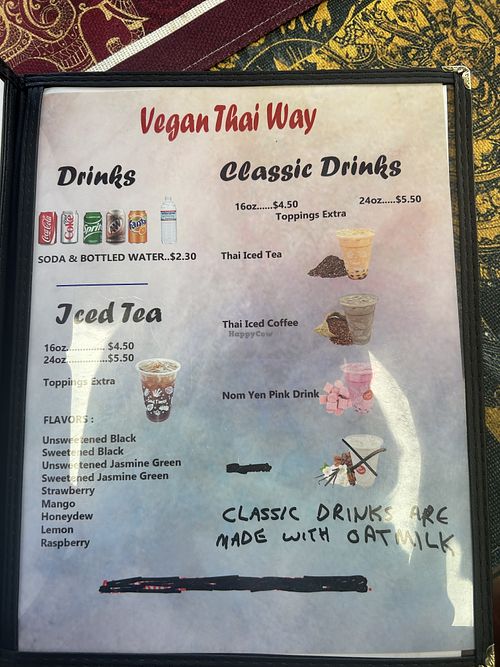 Vegan Thai Way
Drinks
Coca-Cola
Coke
Sprite
Fanta
SODA & BOTTLED WATER..$2.30
Iced Tea
16oz.............. $4.50
24oz..............$5.50
Toppings Extra
FLAVORS :
Unsweetened Black
Sweetened Black
Unsweetened Jasmine Green
Sweetened Jasmine Green
Strawberry
Mango
Honeydew
Lemon
Raspberry
Classic Drinks
16oz......$4.50
24oz.....$5.50
Toppings Extra
Thai Iced Tea
Thai Iced Coffee
HappyCow
Nom Yen Pink Drink
CLASSIC DRINKS ARE
MADE WITH OATMILK